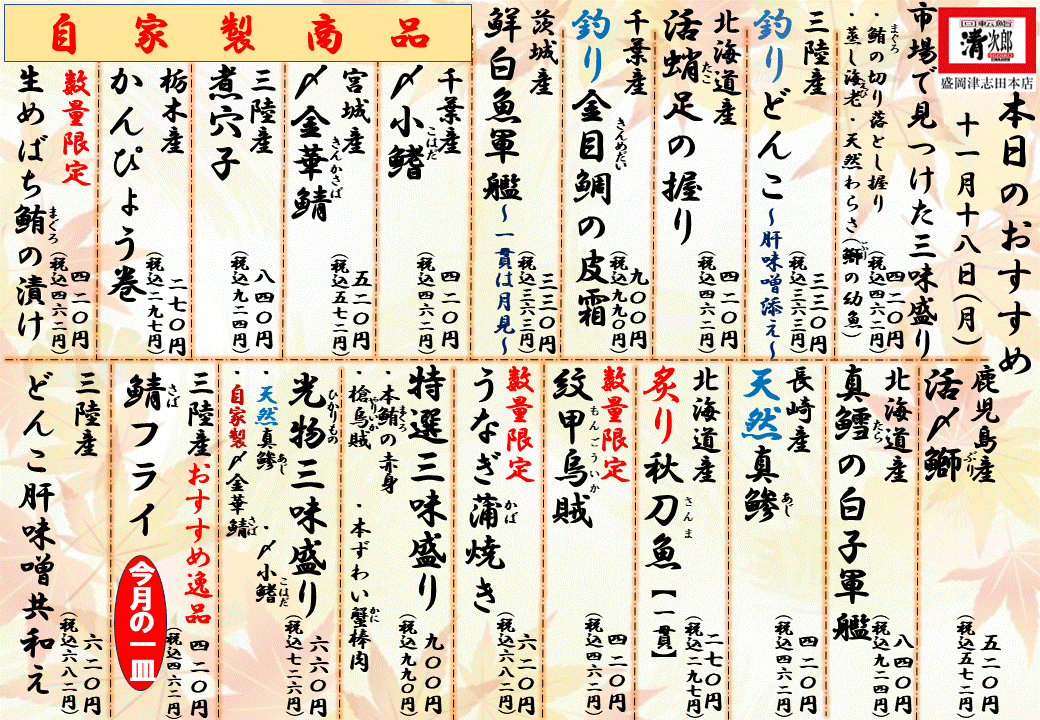 回転鮨
清次郎
盛岡津志田本店
本日のおすすめ
十一月十八日(月)
市場で見つけた三味盛り
・鮪の切り落とし握り
まぐろ
・蒸し海老・天然わらさ(鰤の幼魚)
えび
ぶり
四二〇円
(税込四六二円)
三陸産
釣りどんこ~肝味噌添え~
三三〇円
(税込三六三円)
北海道産
活蛸足の握り
たこ
四二〇円
(税込四六二円)
千葉産
釣り金目鯛の皮霜
きんめだい
九〇〇円
(税込九九〇円)
茨城産
鮮白魚軍艦~一貫は月見~
三三〇円
(税込三六三円)
自家製商品
千葉産
〆小鰭
こはだ
四二〇円
(税込四六二円)
宮城産
〆金華鯖
きんかさば
五二〇円
(税込五七二円)
三陸産
煮穴子
八四〇円
(税込九二四円)
栃木産
かんぴょう巻
二七〇円
(税込二九七円)
数量限定
生めばち鮪の漬け
まぐろ
四二〇円
(税込四六二円)
鹿児島産
活〆鰤
ぶり
五二〇円
(税込五七二円)
北海道産
真鱈の白子軍艦
たら
八四〇円
(税込九二四円)
長崎産
天然真鯵
あじ
四二〇円
(税込四六二円)
北海道産
炙り秋刀魚【一貫】
さんま
二七〇円
(税込二九七円)
数量限定
紋甲烏賊
もんごういか
四二〇円
(税込四六二円)
数量限定
うなぎ蒲焼き
かば
六二〇円
(税込六八二円)
特選三味盛り
・本鮪の赤身
まぐろ
・槍烏賊
やりいか
・本ずわい蟹棒肉
かに
九〇〇円
(税込九九〇円)
光物三味盛り
ひかりもの
・天然真鯵
あじ
・〆小鰭
こはだ
・自家製〆金華鯖
さば
六六〇円
(税込七二六円)
三陸産おすすめ逸品
鯖フライ
さば
今月の一皿
四二〇円
(税込四六二円)
三陸産
どんこ肝味噌共和え
六二〇円
(税込六八二円)